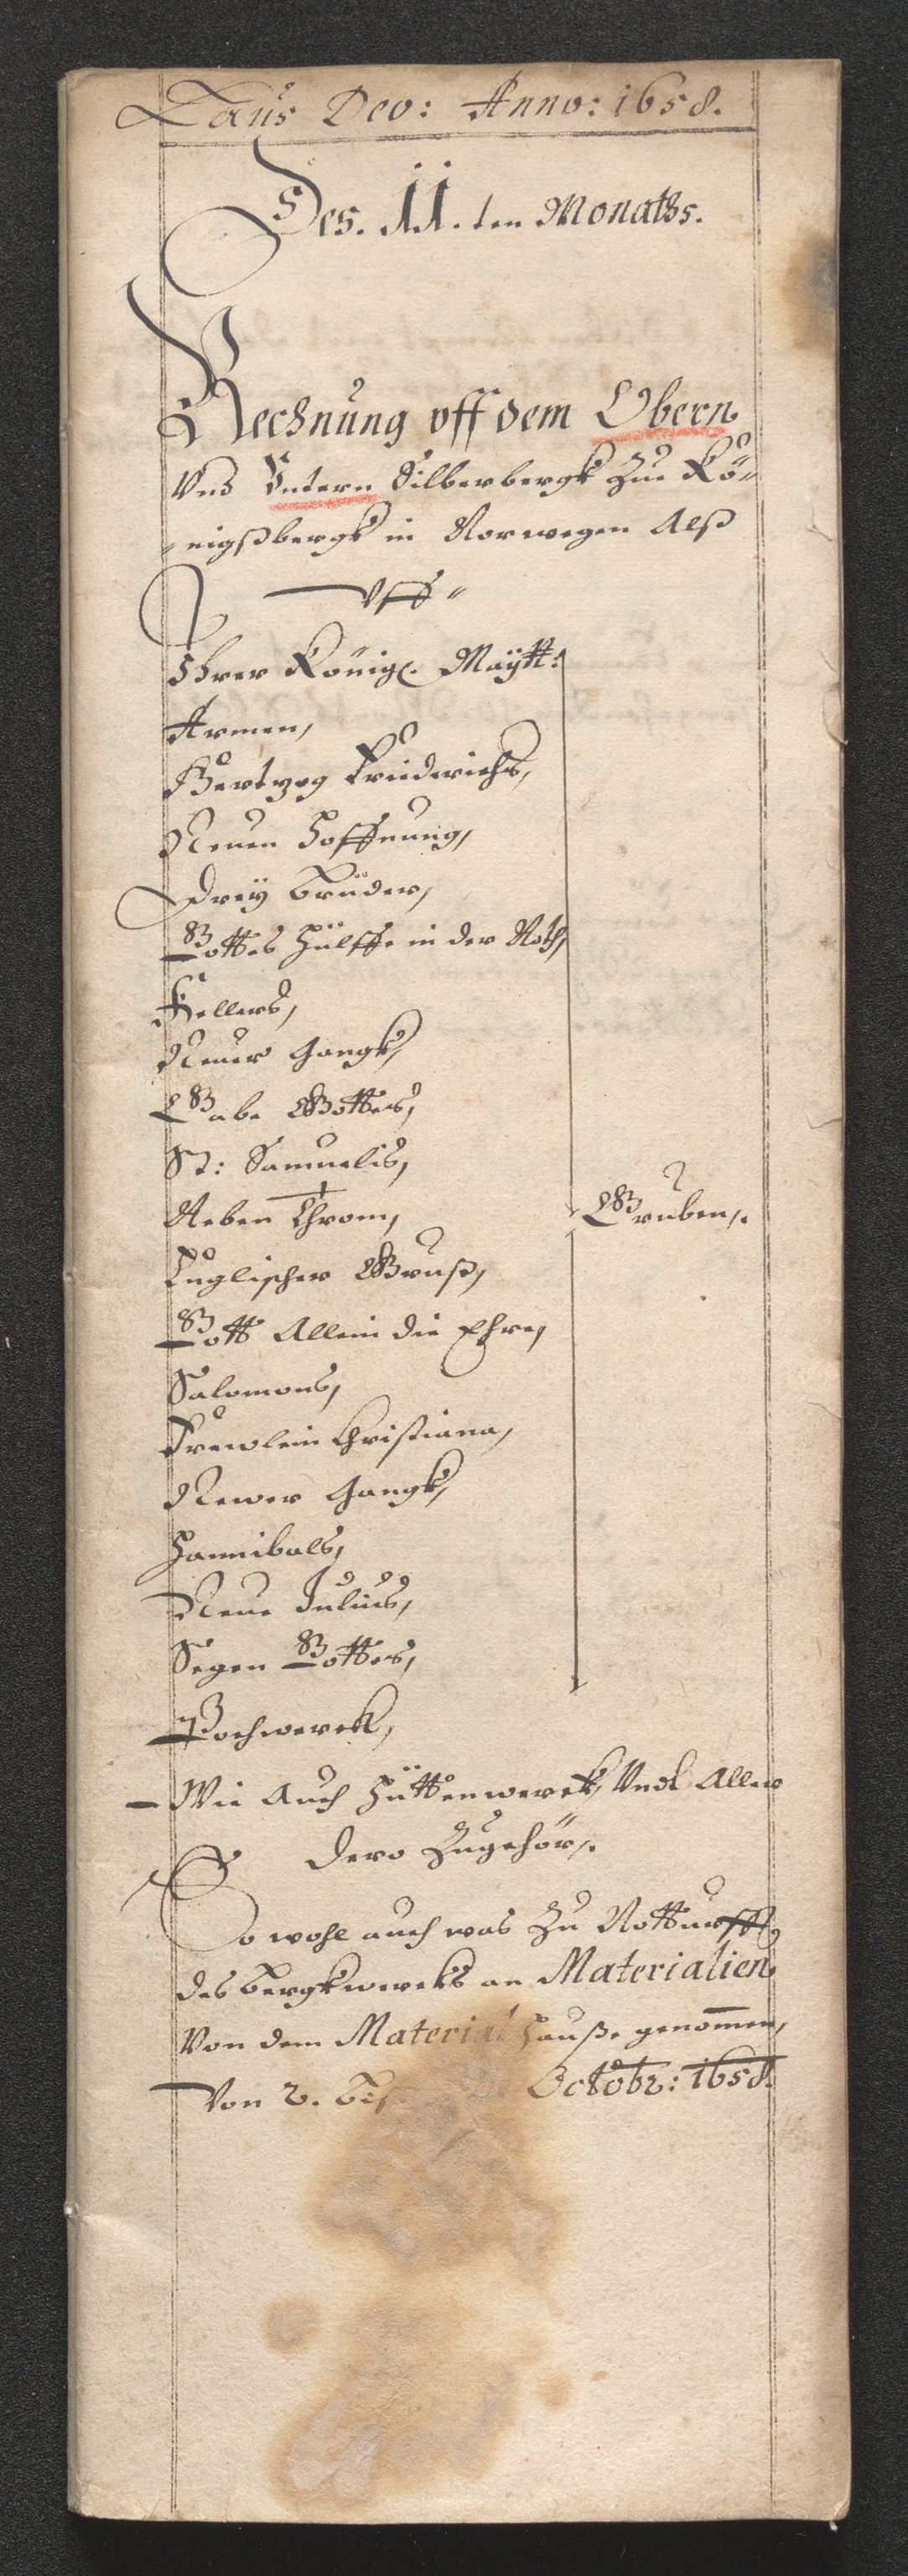 Laus Deo: Anno: 1658.
Des. 11. ten Monaths.
Rechnung vff dem Obern
Vnd Vntern Silberbergk Zue Kö-
nigßbergk in Norwegen Alß
Vff
Ihrer Königl. Maÿtt:
Armen,
Hertzog Friederichs,
Neuen Hoffnung,
Dreÿ Brüder,
Gottes Hülffe in der Noth,
Kellers,
Neuer Gangk,
Gabe Gottes,
St: Samuelis,
Neben Throm,
Gruben,.
Englischer Gruß,
Gott Allein die Ehre,
Salomons,
Frewlein Christiana,
Newer Gangk,
Hannibals,
Neue Julius,
Segen Gottes,
Pochwerck,
Wie Auch Hüttenwerck, Vndt Aller
dero Zugehör,.
So wohl auch was Zu Notturfft
des Bergkwercks an Materialien
Von dem Material Hauße genom̅en,
Von 2. Biß Octobr: 1658.